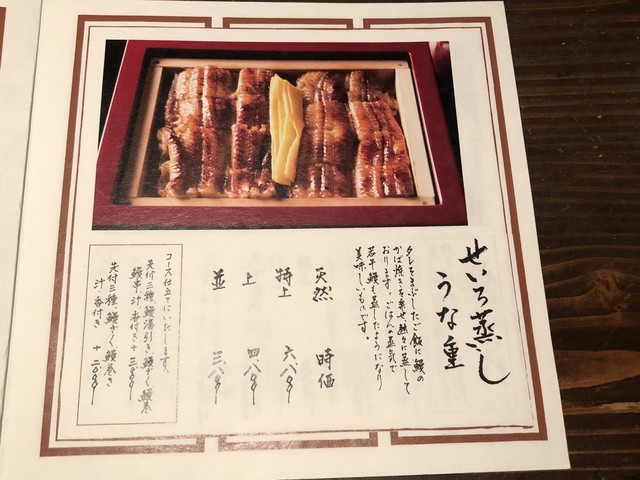 せいろ蒸し
うな重
タレをまぶしたご飯に鰻の
かば焼きを乗せ熱々に蒸して
おります。ごはんの蒸気で
若干鰻も蒸したようになり
美味しいものです。
天然 時価
特上 六、八〇〇
上 四、八〇〇
並 三、八〇〇
コース仕立てにいたします。
先付三種、鰻湯引き、鰻ざく、鰻巻
鰻串、汁、香付き +三、〇〇〇
先付三種、鰻ざく、鰻巻き
汁、香付き +二、〇〇〇